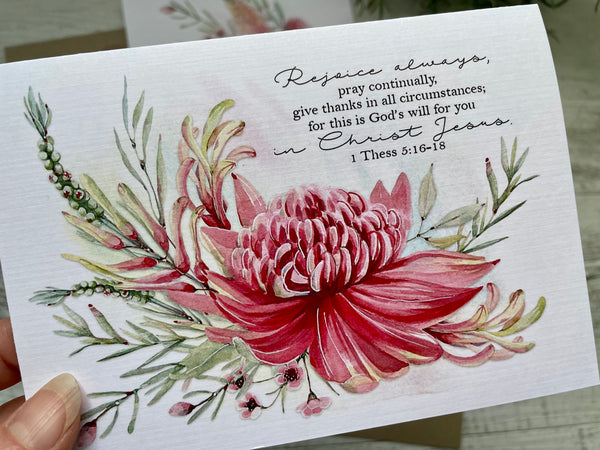 Rejoice always,
pray continually,
give thanks in all circumstances;
for this is God's will for you
in Christ Jesus.
1 Thess 5:16-18